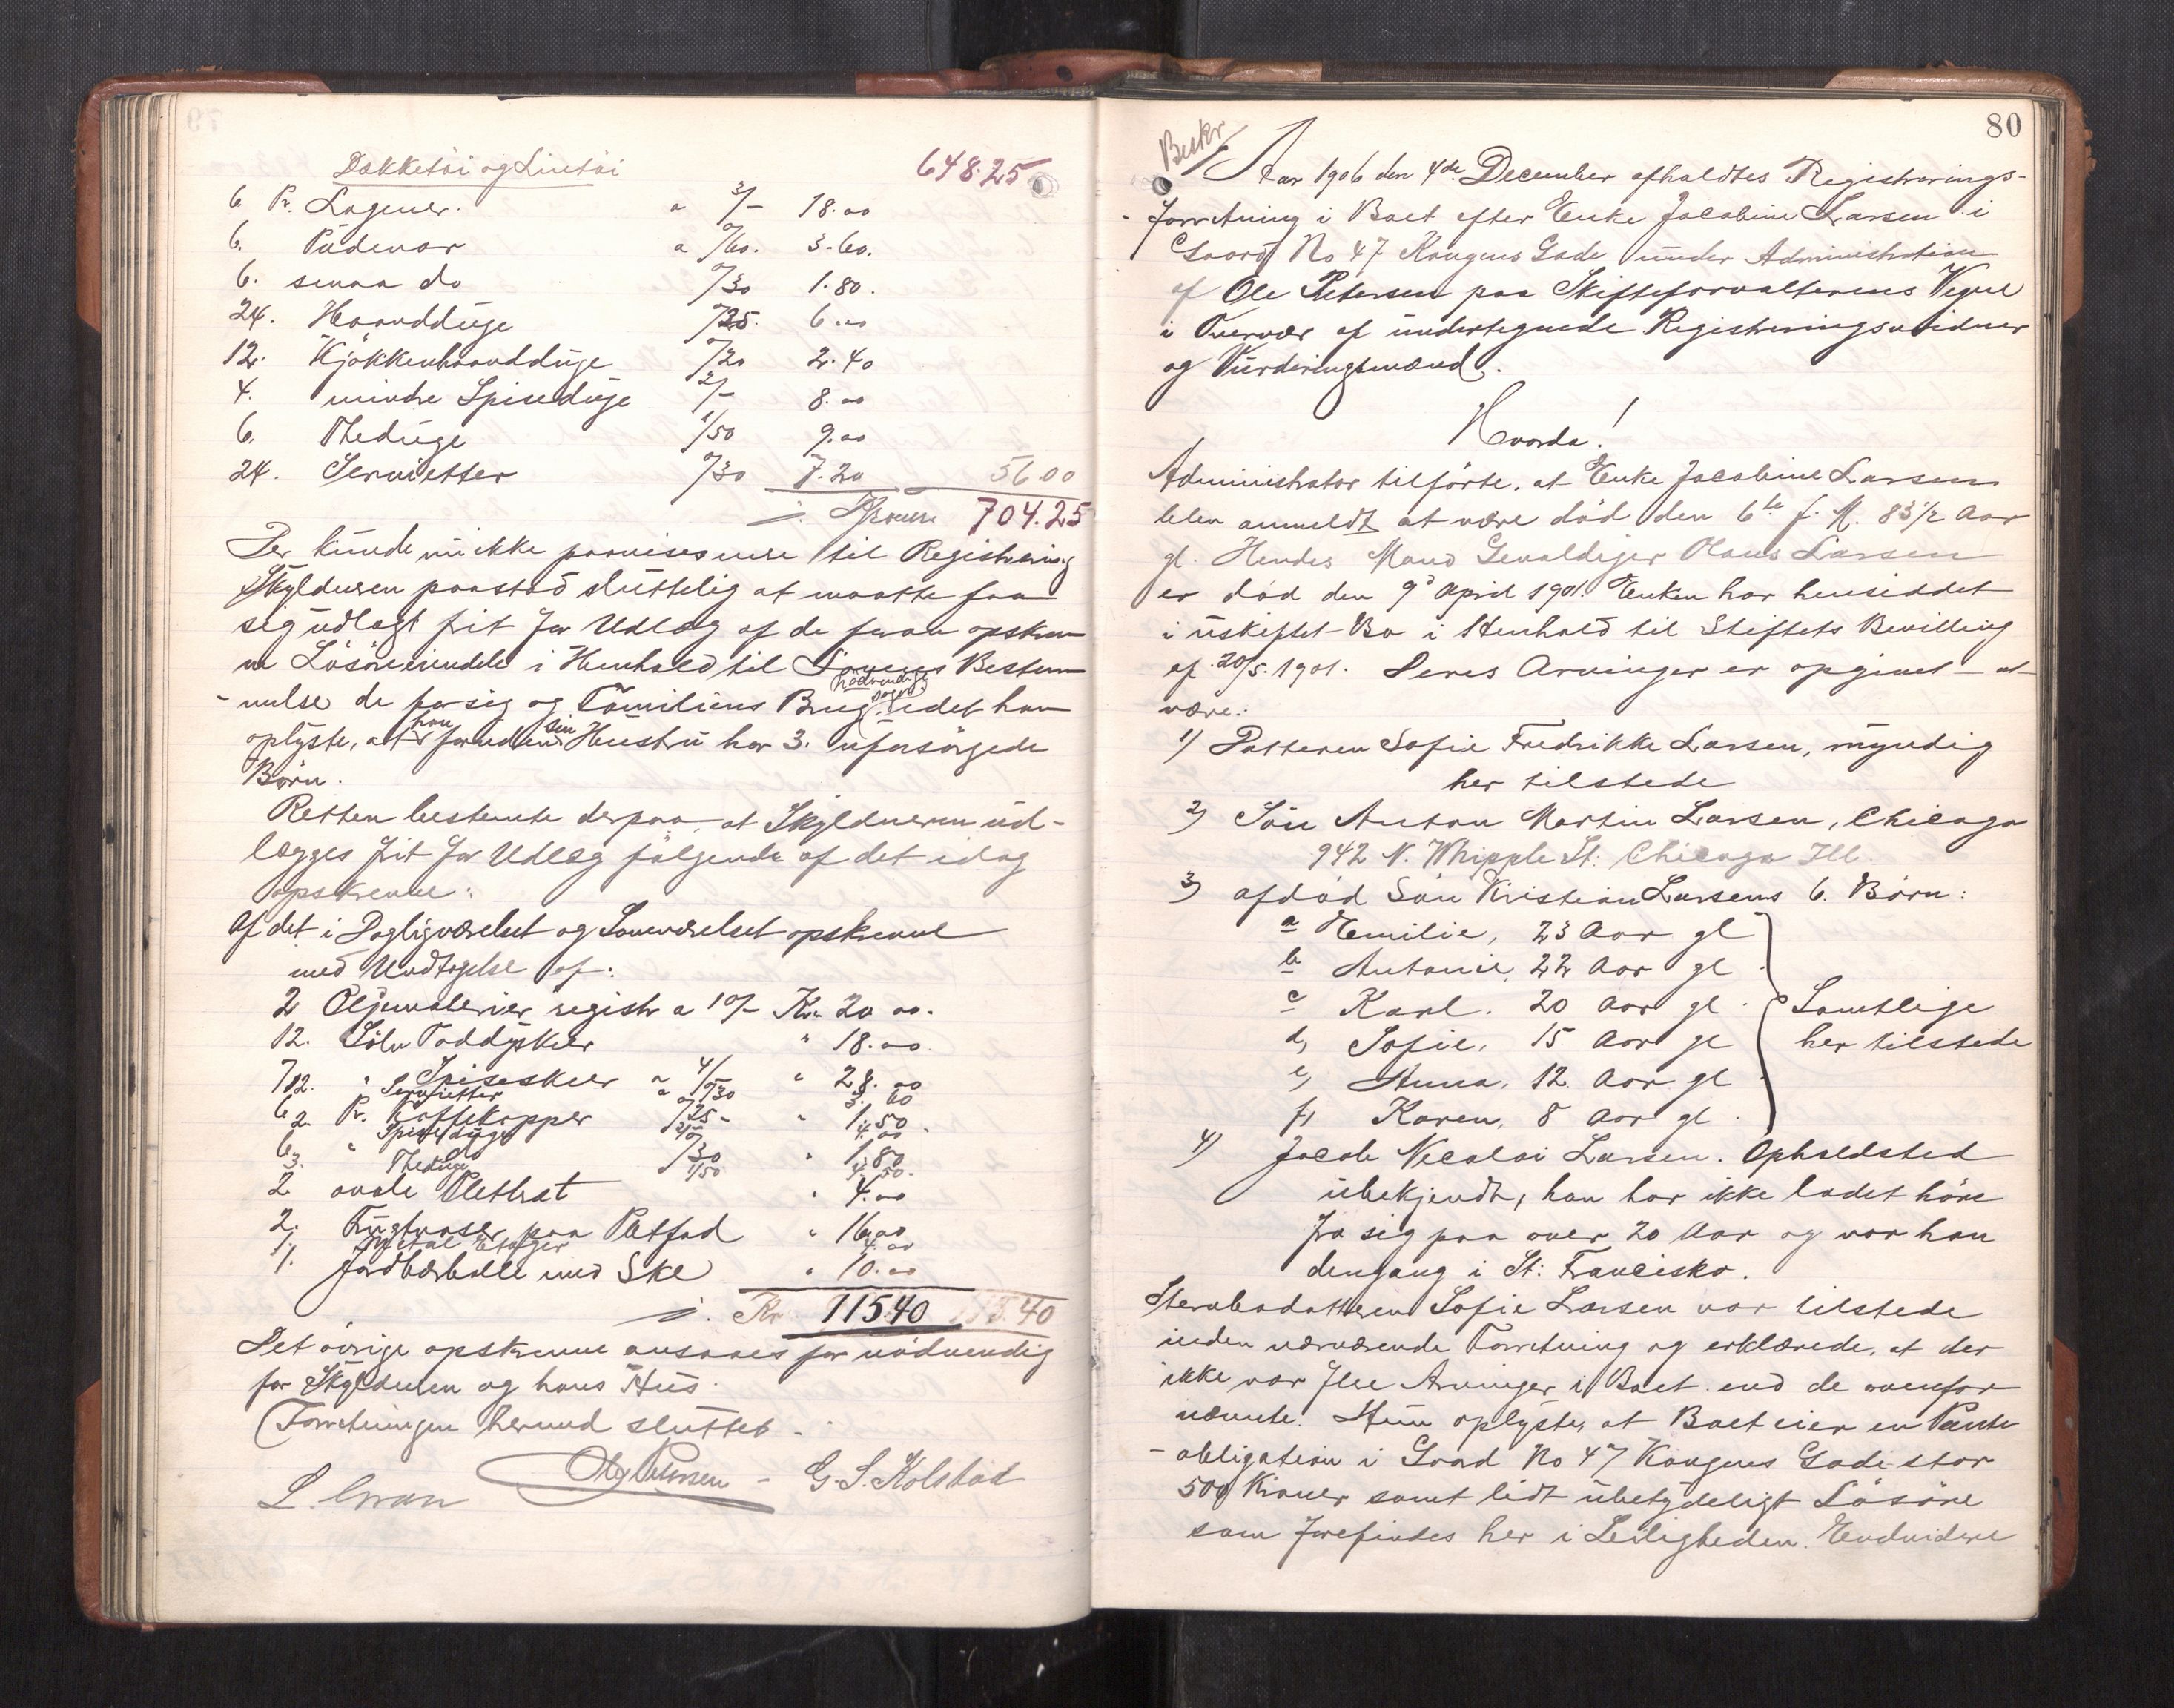 Dækketøi og Lintøi 648.25
6 Pr. Lagener. a 3/- 18.00
6. Pudevar a 0/60. 3.60.
6. smaa do 0/30 1.80.
24. Haandduge 0/25 6.00
12. Kjøkkenhaandduge 0/20 2.40
4. mindre Spiseduge 2/- 8.00
6. Theduge 1/50 9.00
24. Servietter 0/30 7.20 56.00
Kroner 704.25
Der kunde nu ikke paavises mere til Registrering
Skyldneren paastod sluttelig at maatte faa
sig udlagt frit for Udlæg af de foran opskrev
ne Løsøreeiendele i Henhold til Lovens Bestem
-melse de for sig og Familiens Brug nødvendige Sager, idet han
oplyste, at han foruden sin Hustru har 3. uforsørgede
Børn.
Retten bestemte derpaa, at Skyldneren ud-
lægges frit for Udlæg følgende af det idag
opskrevne:
Af det i Dagligværelset og Soveværelset opskrevne
med Undtagelse af:
2 Oljemalerier registr a 10/- Kr. 20 00.
12. Sølv Toddyskeer " 18.00
7 " Spiseskeer a 4/- " 28.00
12. Servietter a 0/30 3.60
6 Pr. Kaffekopper 0/25 - " 1.50
2. Spiseduge 2/- 4.00
6 " 0/30 " 1.80
3. Theduge 1/50 4.50.
2 ovale Pletbret " 4.00
2. Frugtvaser paa Pletfad " 16.00
1. Metal Etager 4.00
1. Jordbærbolle med Ske " 10.00
Kr 115.40 115.40
Det øvrige opskrevne ansaaes for nødvendig
for Skyldneren og hans Hus.
Forretningen hermed sluttet.
Ole Petersen - G. S. Kolstad
L.
80
Beskr
Aar 1906 den 4de December afholdtes Registrerings-
-forretning i Boet efter Enke Jacobine Larsen i
Gaard No 47 Kongens Gade under Administration
af Ole Petersen paa Skifteforvalterens Vegne
i Overvær af undertegnede Registreringsvidner
og Vurderingsmænd.
Hvorda!
Administrator tilførte, at Enke Jacobine Larsen
blev anmeldt at være død den 6te f. M. 83 1/2 Aar
gl. Hendes Mand Gevaldiger Hans Larsen
er død den 9d April 1901. Enken har hensiddet
i uskiftet Bo i Henhold til Stiftets Bevilling
af 20/5. 1901. Deres Arvinger er opgivet at
være:
1) Datteren Sofie Fredrikke Larsen, myndig
her tilstede
2) Søn Anton Martin Larsen, Chicago
942 N. Whipple St: Chicago Ill.
3) afdød Søn Kristian Larsens 6. Børn:
a Emilie, 23 Aar gl
b Antonie, 22 Aar gl
c Karl. 20 Aar gl. Samtlige
d, Sofie, 15 Aar gl her tilstede
e, Anna, 12 Aar gl
f, Karen, 8 Aar gl.
4) Jacob Nicolai Larsen. Opholdsted
ubekjendt, han har ikke ladet høre
fra sig paa over 20 Aar og var han
dengang i St: Francisko.
Stervbodatteren Sofie Larsen var tilstede
under nærværende Forretning og erklærede, at der
ikke var flere Arvinger i Boet end de ovenfor
nævnte. Hun oplyste, at Boet eier en Pante
-obligation i Gaard No 47 Kongens Gade stor
500 Kroner samt lidt ubetydeligt Løsøre
som forefindes her i Leiligheden. Endvidere